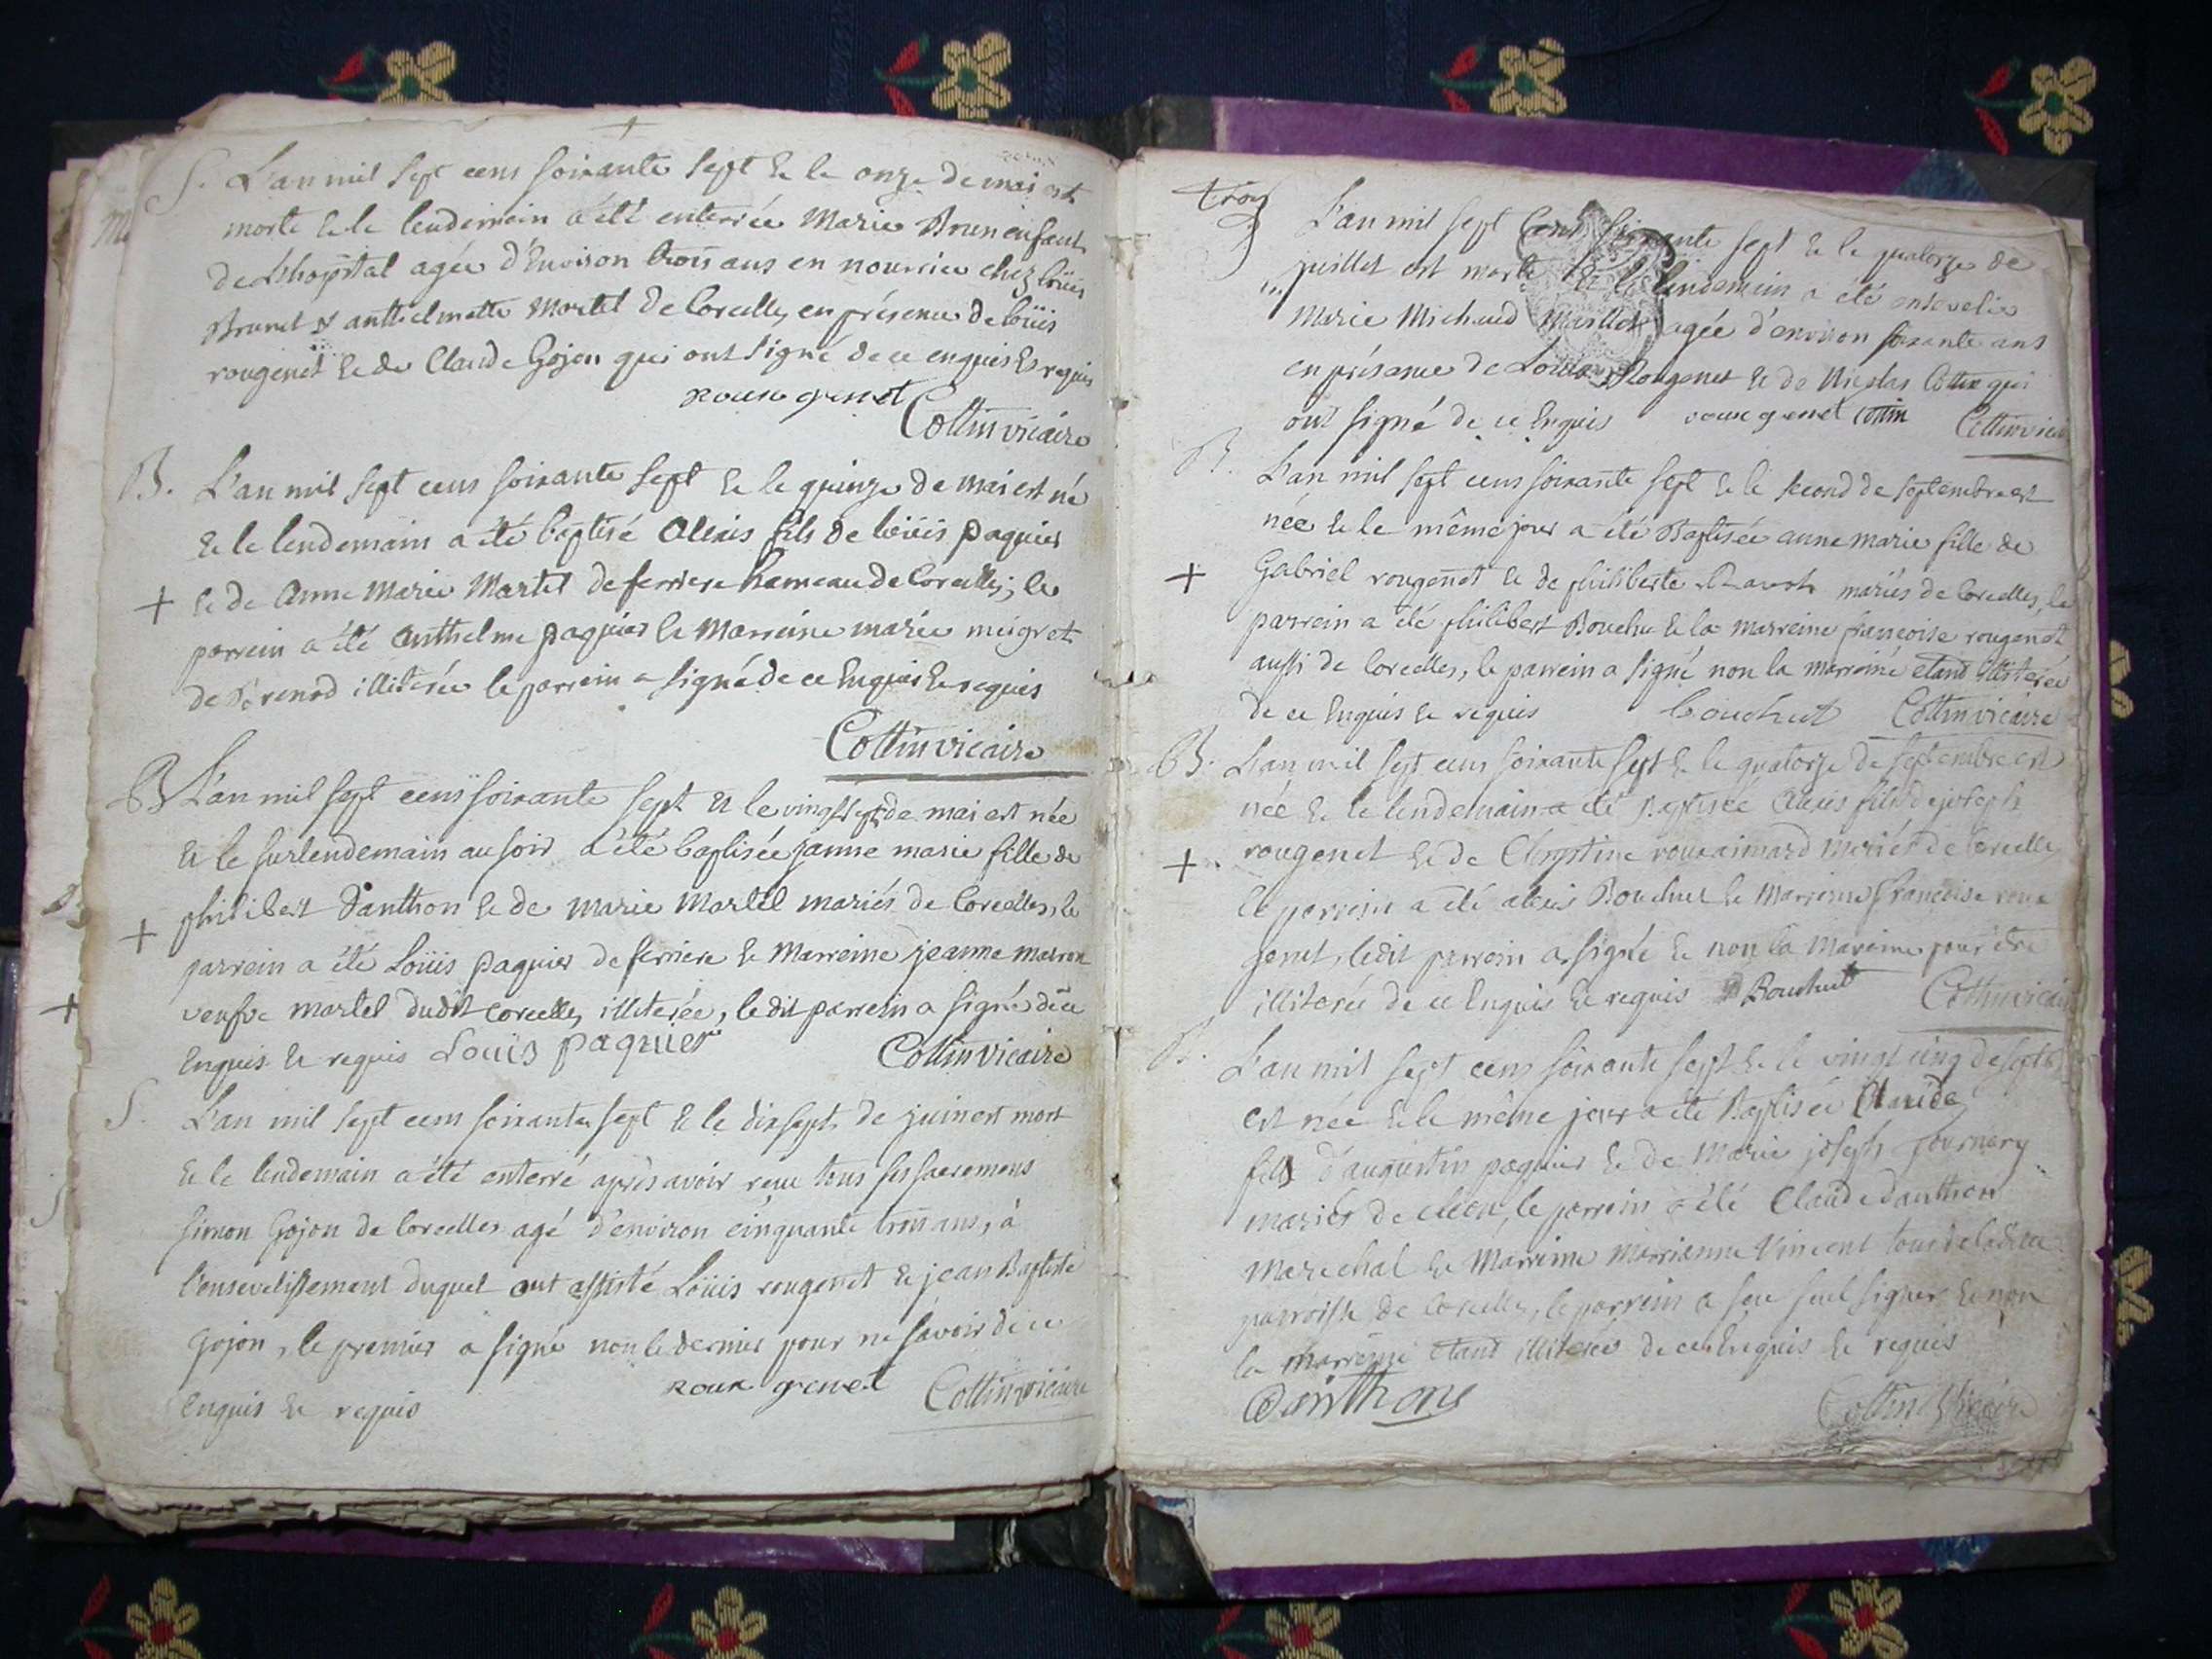 S. L'an mil sept cens soixante sept & le onze de mai est
morte & le lendemain a été enterrée Marie Brun enfant
de L'hopital agée d'Environ trois ans en nourrice chez Loüis
Brunet & anthelmette Martel de Corcelles en présence de Loüis
rougenet & de Claude Gojon qui ont signé de ce enquis & requis
roux grenet
Cottin vicaire
B. L'an mil sept cens soixante sept & le quinze de mai est né
& le lendemain a été baptisé Alexis fils de loüis paquier
+ & de Anne Marie Martel de ferriere hameau de Corcelles; le
parrein a été Anthelme paquier la Marreine marie meigret
de illiterée le parrein a signé de ce Enquis & requis
Cottin vicaire
B L'an mil sept cens soixante sept & le vingt sept de mai est née
& le surlendemain au soir a été baptisée janne marie fille de
+ philibert Danthon & de Marie Martel mariés de Corcelles, le
parrein a été Loüis paquier de ferriere & Marreine jeanne
+ veufve martel dudit Corcelles illiterée, le dit parrein a signé de ce
Enquis & requis Louis paquier Cottin Vicaire
S. L'an mil sept cens soixante sept & le dix sept de juin est mort
& le lendemain a été enterré après avoir reçu tous ses sacremens
simon Gojon de Corcelles agé d'environ cinquante trois ans, à
l'ensevelissement duquel ont assisté Loüis rougenet & jean Baptiste
Gojon, le premier a signé non le dernier pour ne savoir de ce
Enquis & requis roux grenet Cottin vicaire
trois
L'an mil sept Cent soixante sept & le quatorze de
juillet est morte & le lendemain a été ensevelie
Marie Michaud Maillet agée d'environ soixante ans
en présence de Loüis Rougenet & de Nicolas Cottin qui
ont signé de ce Enquis roux grenet cottin Cottin vicaire
B. L'an mil sept cens soixante sept & le second de septembre est
née & le même jour a été Baptisée anne marie fille de
+ Gabriel rougenet & de philiberte mariés de Corcelles, le
parrein a été philibert Bouchu & la marreine françoise rougenet
aussi de Corcelles, le parrein a signé non la marreine etand illiterée
de ce Enquis & requis bouchut Cottin vicaire
B. L'an mil sept cens soixante sept & le quatorze de septembre est
née & le lendemain a été Baptisée Alexis fils de joseph
+ rougenet & de Chrystine mariés de Corcelles
le parrein a été alexis Bouchut la Marreine françoise roux
genet, ledit parrein a signé & non la Mareine pour être
illiterée de ce Enquis & requis Bouchut Cottin vicaire
B. L'an mil sept cens soixante sept & le vingt cinq de sept
est née & le même jour a été Baptisée Claude
fils d'augustin paquier & de Marie joseph
mariés de le parrein a été Claude danthon
marechal & Marreine Marrianne Vincent tous de ladite
parroisse de Corcelles, le parrein a seu seul signer & non
la marreine etant illiterée de ce Enquis & requis
Danthons Cottin Vicaire